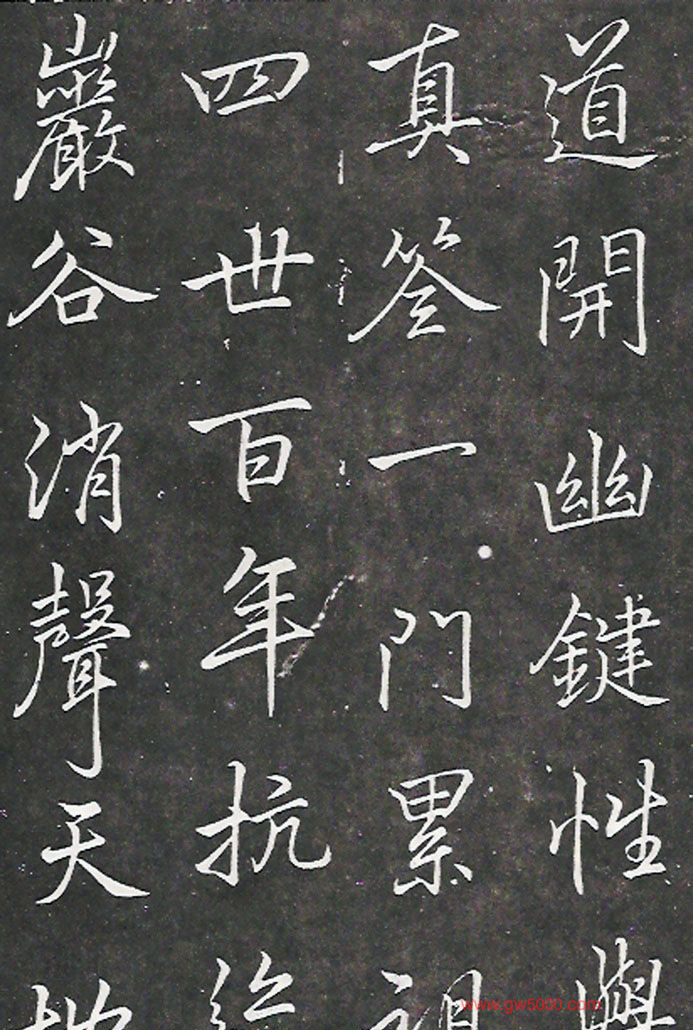 道開幽鍵性
真筌一門累
四世百年抗
巖谷消聲天地
www.gw5000.com